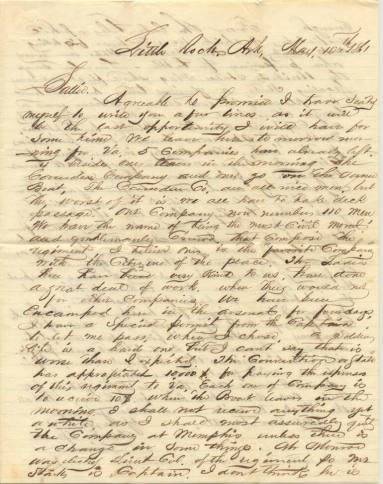 Little Rock, Ark, May, 10th 1861
Sallie.
Agreable to promise I have
myself to write you a few lines, as it will
be the last opportunity I will have for
some time. We leave here to morrow mor
ning for Va, 5 Companies have already left.
beside our leave in the morning. The
Camden Company and ours go on the same
Boat, The Camden Co, are all nice men, but
the worst of it is we all have to take deck
passage. Our Company now number 110 men
We have the name of being the most Civil moral
and gentlemanly Comd, that Compose the
regiment & I called ours to the favorite Company
with the Citizens of the place. The Ladies
here have been very kind to us, have done
a great deal of work, when they would not
for other Companies. We have been
Encamped here in the arsenal for four days,
I have a Special permit from the Captain
to let me pass, when I choose, a Soldiers
life is a hard one but I cant say that is
worse than I expected. The Convention of State
has appropriated 10,000 $ for paying the expenses
of this regiment to Va, Each one of Company is
to receive 10$ when the Boat leaves in the
morning, I shall not receive anything yet
a while, as I should most assuredly quit
the Company at Memphis unless there is
a change in some things. Mr Monroe
was elected Lieut Col. of the regiment, & Mr
is Captain, I don't think he is